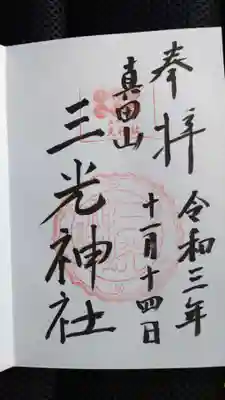 奉拝
令和三年
十一月十四日
真田山
三光神社